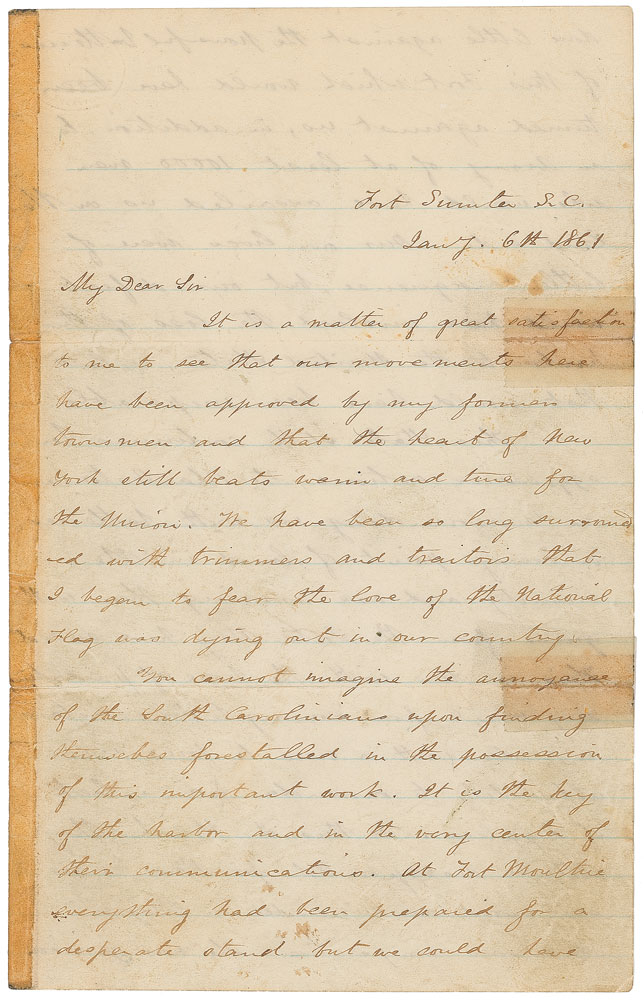 Fort Sumter S.C.
Jany. 6th 1861
My Dear Sir
It is a matter of great satisfaction
to me to see that our movements here
have been approved by my former
townsmen and that the heart of New
York still beats warm and true for
the Union. We have been so long surround
-ed with trimmers and traitors that
I began to fear the love of the National
Flag was dying out in our country.
You cannot imagine the annoyance
of the South Carolinians upon finding
themselves forestalled in the possession
of this important work. It is the key
of the harbor and in the very center of
their communications. At Fort Moultrie
everything had been prepared for a
desperate stand but we could have